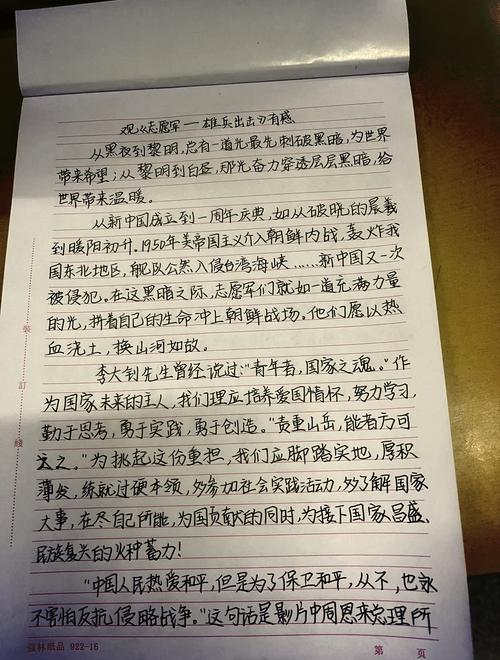 观《志愿军——雄兵出击》有感
从黑夜到黎明,总有一道光最先刺破黑暗,为世界
带来希望;从黎明到白昼,那光奋力穿透层层黑暗,给
世界带来温暖。
从新中国成立到一周年庆典,如从破晓的晨羲
到暖阳初升。1950年美帝国主义介入朝鲜内战,轰炸我
国东北地区,舰队公然入侵台湾海峡……新中国又一次
被侵犯。在这黑暗之际,志愿军们就如一道充满力量
的光,拼着自己的生命冲上朝鲜战场。他们愿以热
血浇土,换山河如故。
李大钊先生曾经说过:“青年者,国家之魂。”作
为国家未来的主人,我们理应培养爱国情怀,努力学习,
勤于思考,勇于实践,勇于创造。“责重山岳,能者方可
之。”为挑起这份重担,我们应脚踏实地,厚积
薄发,练就过硬本领,多参加社会实践活动,多了解国家
大事,在尽自己所能,为国贡献的同时,为接下国家昌盛、
民族复兴的火种蓄力!
“中国人民热爱和平,但是为了保卫和平,从不,也永
不害怕反抗侵略战争。”这句话是影片中周恩来总理所
装
订
线
强林纸品 922-16
第 页